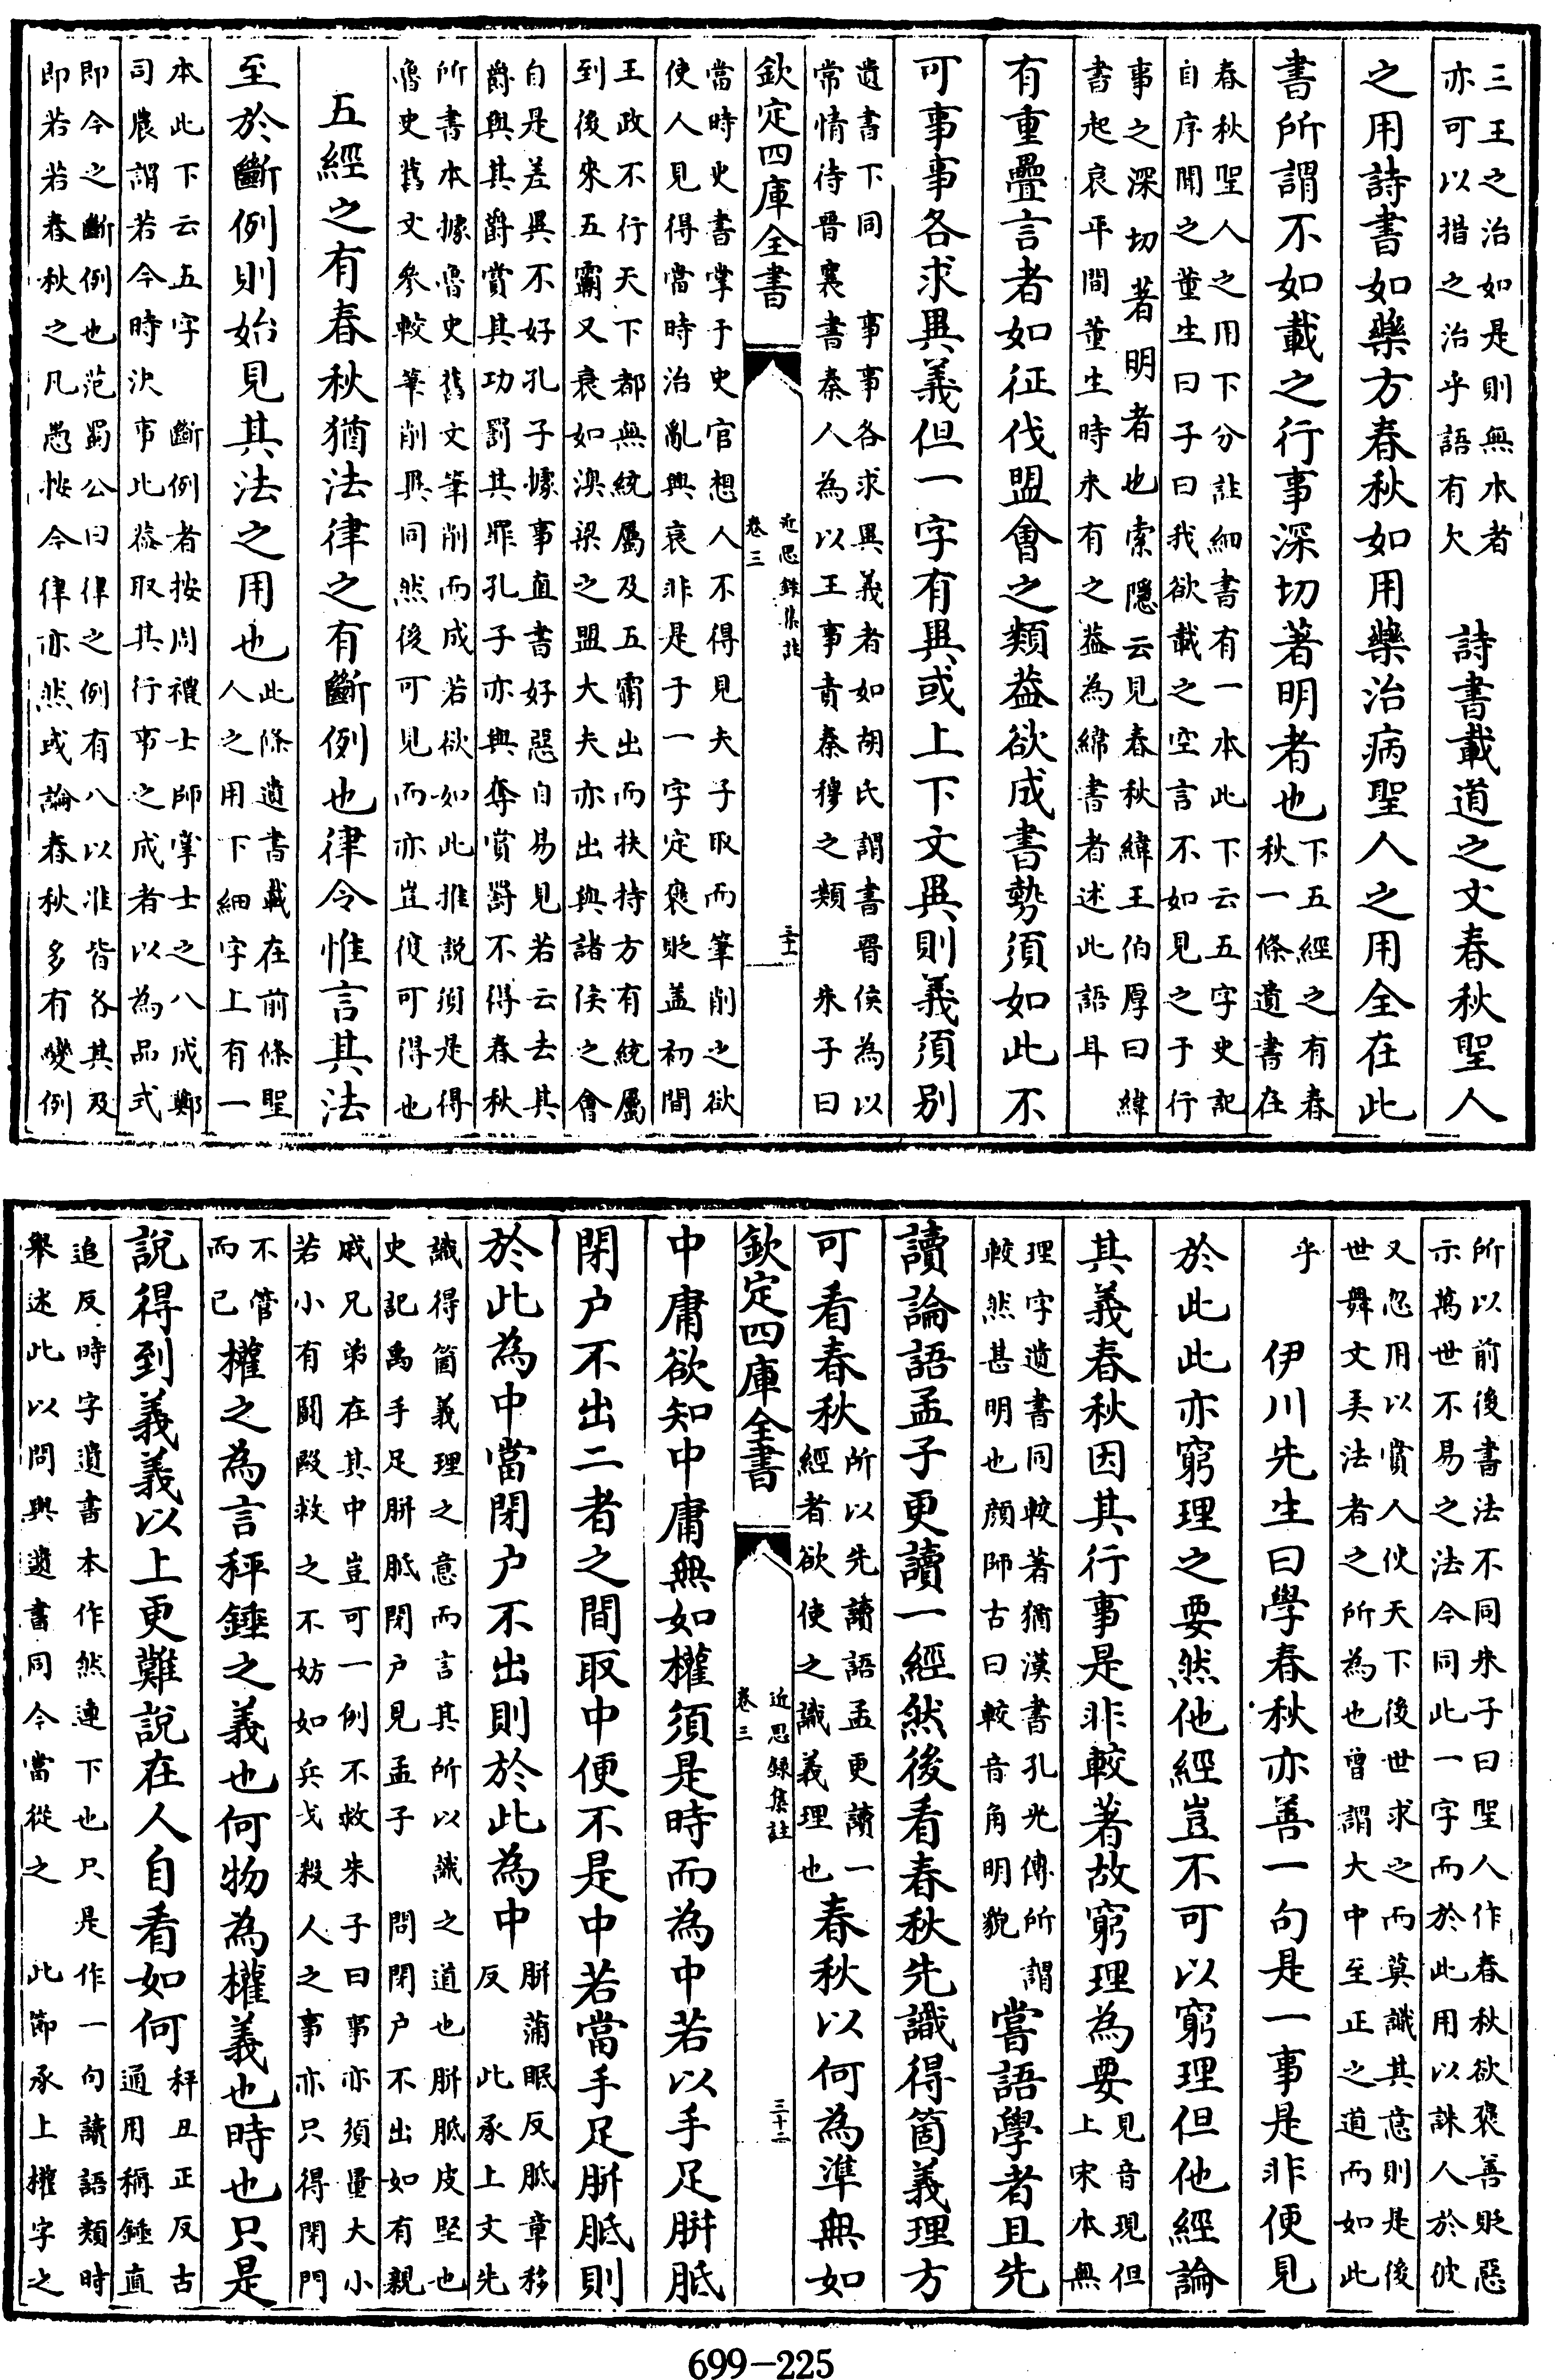 三王之治如是則無本者
亦可以措之治乎語有欠
詩書載道之文春秋聖人
之用詩書如藥方春秋如用藥治病聖人之用全在此
書所謂不如載之行事深切著明者也
下五經之有春
秋一條遺書在
春秋聖人之用下分註細書有一本此下云五字史記
自序聞之董生曰子曰我欲載之空言不如見之于行
事之深切著明者也索隱云見春秋緯王伯厚曰緯
書起哀平間董生時未有之葢為緯書者述此語耳
有重疊言者如征伐盟會之類葢欲成書勢須如此不
可事事各求異義但一字有異或上下文異則義須別
遺書下同 事事各求異義者如胡氏謂書晉侯為以
常情待晉襄書秦人為以王事責秦穆之類 朱子曰
欽定四庫全書 近思錄集註 卷三 三十一
當時史書掌于史官想人不得見夫子取而筆削之欲
使人見得當時治亂興衰非是于一字定褒貶盖初間
王政不行天下都無統屬及五霸出而扶持方有統屬
到後來五霸又衰如溴梁之盟大夫亦出與諸侯之會
自是差異不好孔子據事直書好惡自易見若云去其
爵與其爵賞其功罰其罪孔子亦與奪賞罰不得春秋
所書本據魯史舊文筆削而成若欲如此推說須是得
魯史舊文參較筆削異同然後可見而亦豈復可得也
五經之有春秋猶法律之有斷例也律令惟言其法
至於斷例則始見其法之用也
此條遺書載在前條聖
人之用下細字上有一
本此下云五字 斷例者按周禮士師掌士之八成鄭
司農謂若今時決事比葢取其行事之成者以為品式
即今之斷例也范蜀公曰律之例有八以准皆各其及
即若若春秋之凡愚按今律亦然或論春秋多有變例
所以前後書法不同朱子曰聖人作春秋欲褒善貶惡
示萬世不易之法今同此一字而於此用以誅人於彼
又忽用以賞人使天下後世求之而莫識其意則是後
世舞文弄法者之所為也曾謂大中至正之道而如此
乎
伊川先生曰學春秋亦善一句是一事是非便見
於此此亦窮理之要然他經豈不可以窮理但他經論
其義春秋因其行事是非較著故窮理為要
見音現但
上宋本無
理字遺書同較著猶漢書孔光傳所謂
較然甚明也顏師古曰較音角明貌
嘗語學者且先
讀論語孟子更讀一經然後看春秋先識得箇義理方
可看春秋
所以先讀語孟更讀一
經者欲使之識義理也
春秋以何為準無如
欽定四庫全書 近思錄集註 卷三 三十二
中庸欲知中庸無如權須是時而為中若以手足胼胝
閉户不出二者之間取中便不是中若當手足胼胝則
於此為中當閉户不出則於此為中
胼蒲眠反胝章移
反 此承上文先
識得箇義理之意而言其所以識之道也胼胝皮堅也
史記禹手足胼胝閉户見孟子 問閉户不出如有親
戚兄弟在其中豈可一例不救朱子曰事亦須量大小
若小有鬭毆救之不妨如兵戈殺人之事亦只得閉門
不管
而已
權之為言秤錘之義也何物為權義也時也只是
說得到義義以上更難說在人自看如何
秤丑正反古
通用稱錘直
追反時字遺書本作然連下也只是作一句讀語類時
舉述此以問與遺書同今當從之 此節承上權字之
699-225